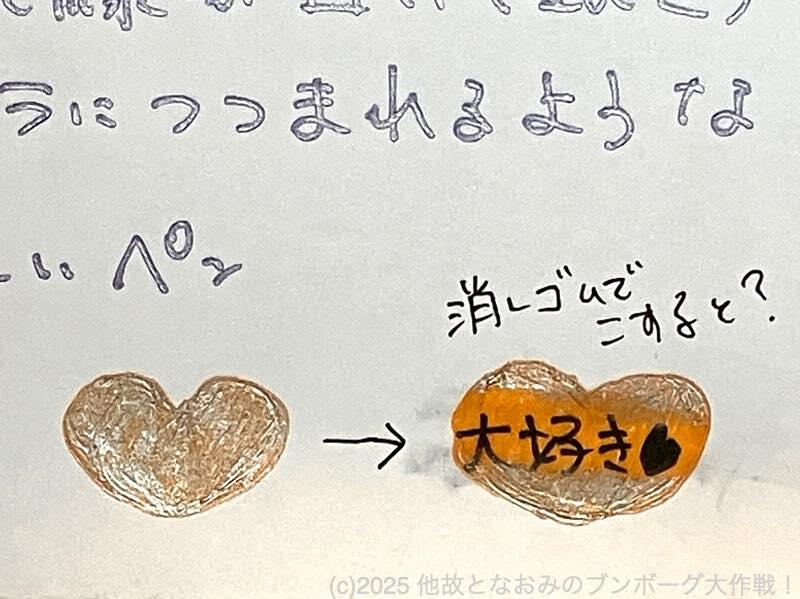 ラにつつまれるような
いい ペ
消しゴムで
こすると?
大好き♥
(c)2025 他故となおみのブンボーグ大作戦！